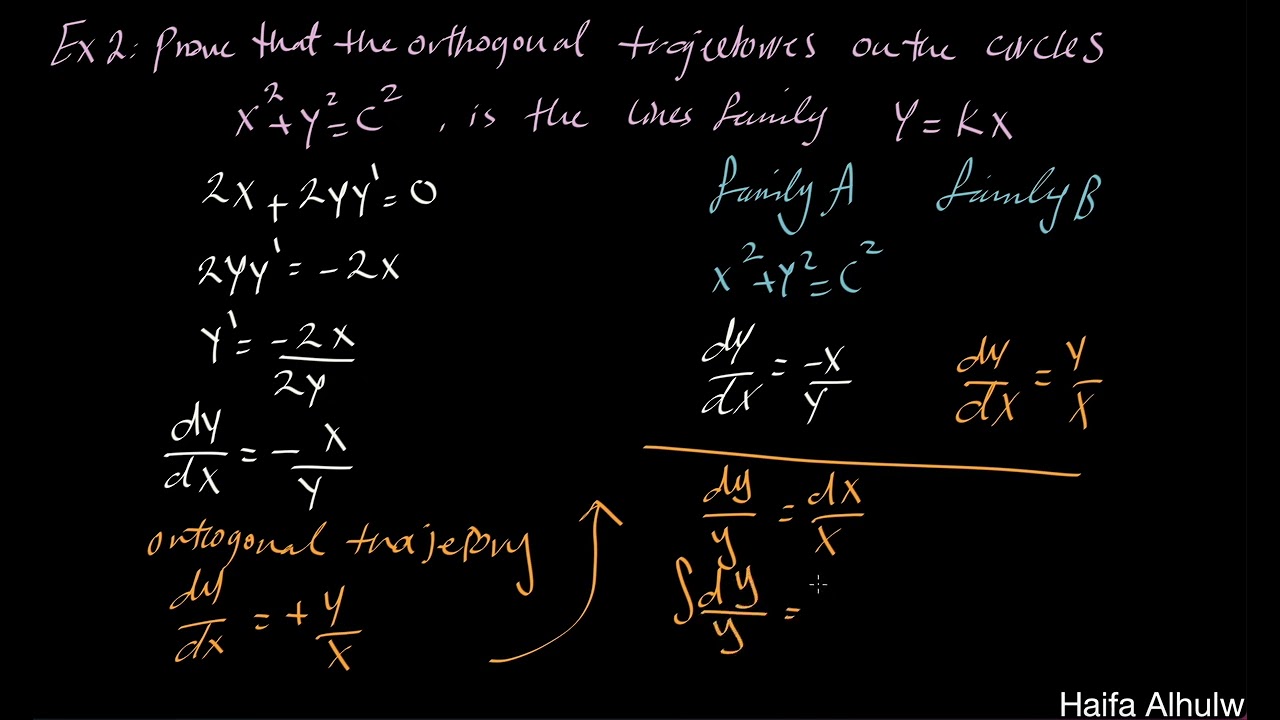 Ex 2: Prove that the orthogonal trajectories on the circles
x²+y²=c², is the lines family y=kx
2x+2yy'=0
2yy'=-2x
y'=-2x/2y
dy/dx=-x/y
orthogonal trajectory
dy/dx=+y/x
family A family B
x²+y²=c²
dy/dx=-x/y dy/dx=y/x
dy/y=dx/x
∫dy/y=
Haifa Alhulw